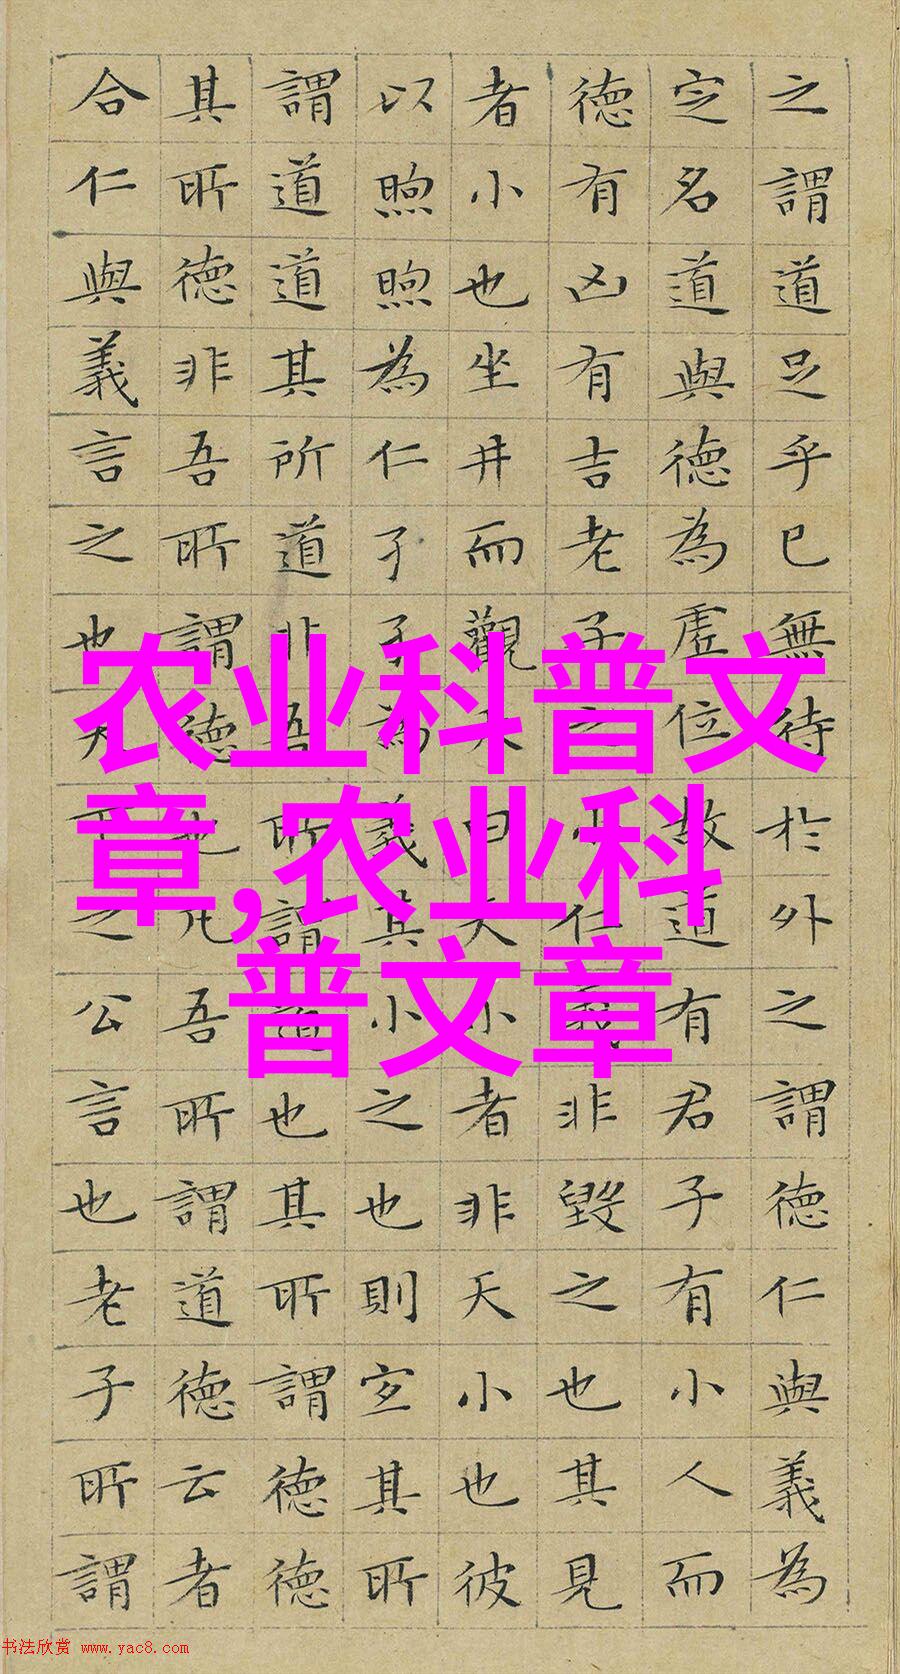 之謂道足乎已無待於外之謂德仁與義為
定名道與德為虛位故道有君子有小人而
德有凶有吉老子之小仁義非毀之也其見
者小也坐井而觀天曰天小者非天小也彼
以煦煦為仁孑孑為義其小之也則宜其所
謂道道其所道非吾所謂道也其所謂德德
其所德非吾所謂德也凡吾所謂道德云者
合仁與義言之也天下之公言也老子所謂
农业科普文
章,农业科
普文章
书法欣赏 www.yac8.com